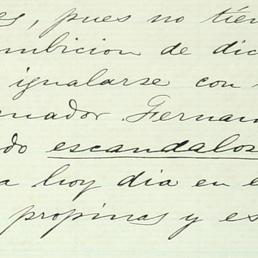 es, pues no tien
mbicion de dic
igualarse con
nador Fernan
do escandalos
a hoy dia en e
propinas y es